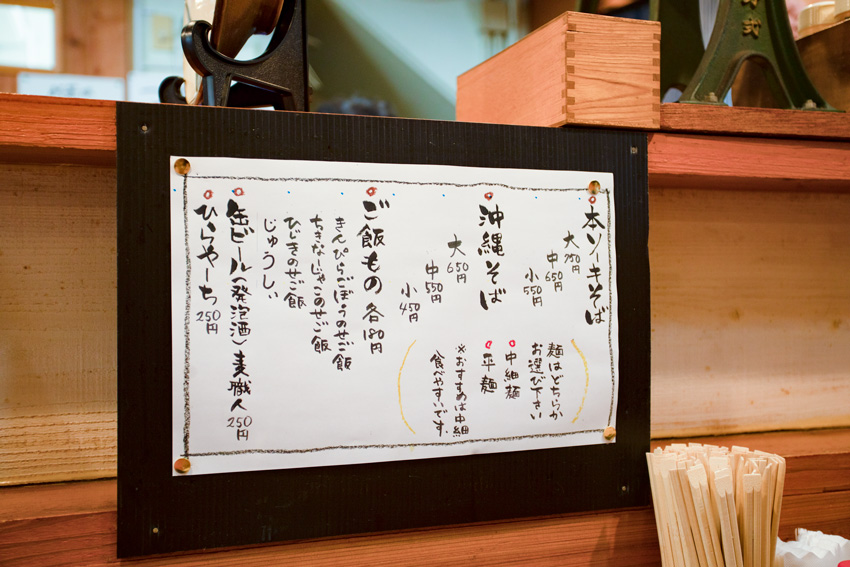 本ソーキそば
大750円
中650円
小550円
麺はどちらか
お選び下さい
中細麺
平麺
※おすすめは中細
食べやすいです
沖縄そば
大650円
中550円
小450円
ご飯もの 各180円
きんぴらごぼうのせご飯
ちきなーじゃこのせご飯
ひじきのせご飯
じゅうしぃ
缶ビール(発泡酒)麦職人 250円
ひらやーち 250円